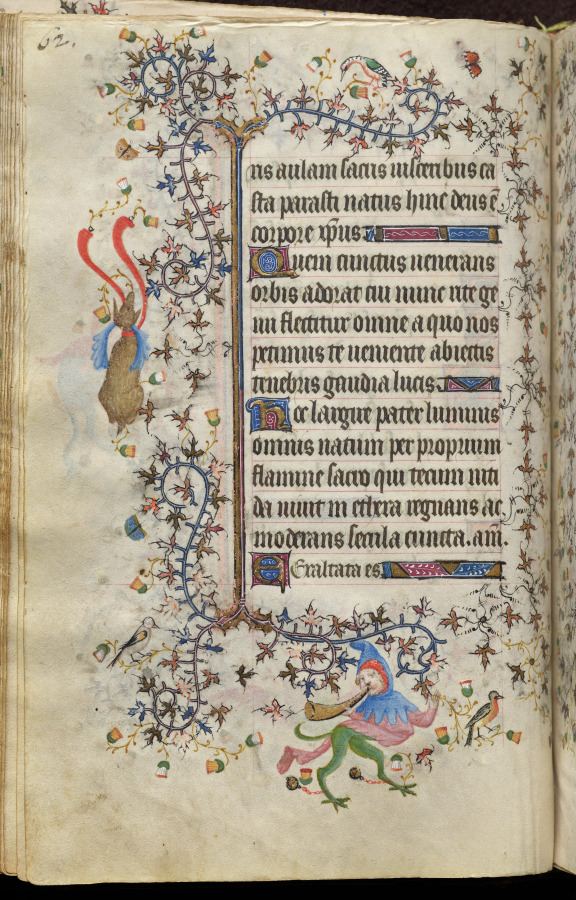 62.
ris aulam sacris visceribus ca
sta parasti natus hinc deus ē
corpore xp̄us.
Quem cunctus venerans
orbis adorat cui nunc rite ge
nu flectitur omne a quo nos
petimus te veniente abiectis
tenebris gaudia lucis.
Hoc largire pater luminis
omnis natum per proprium
flamine sacro qui tecum niti
da vivit in ethera regnans ac
moderans secula cuncta. am̄.
Exaltata es.